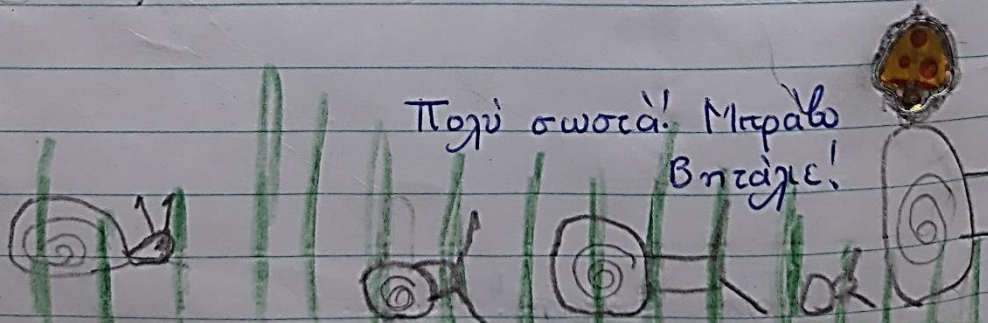 Πολύ σωστά! Μπράβο
Βητάλιε!